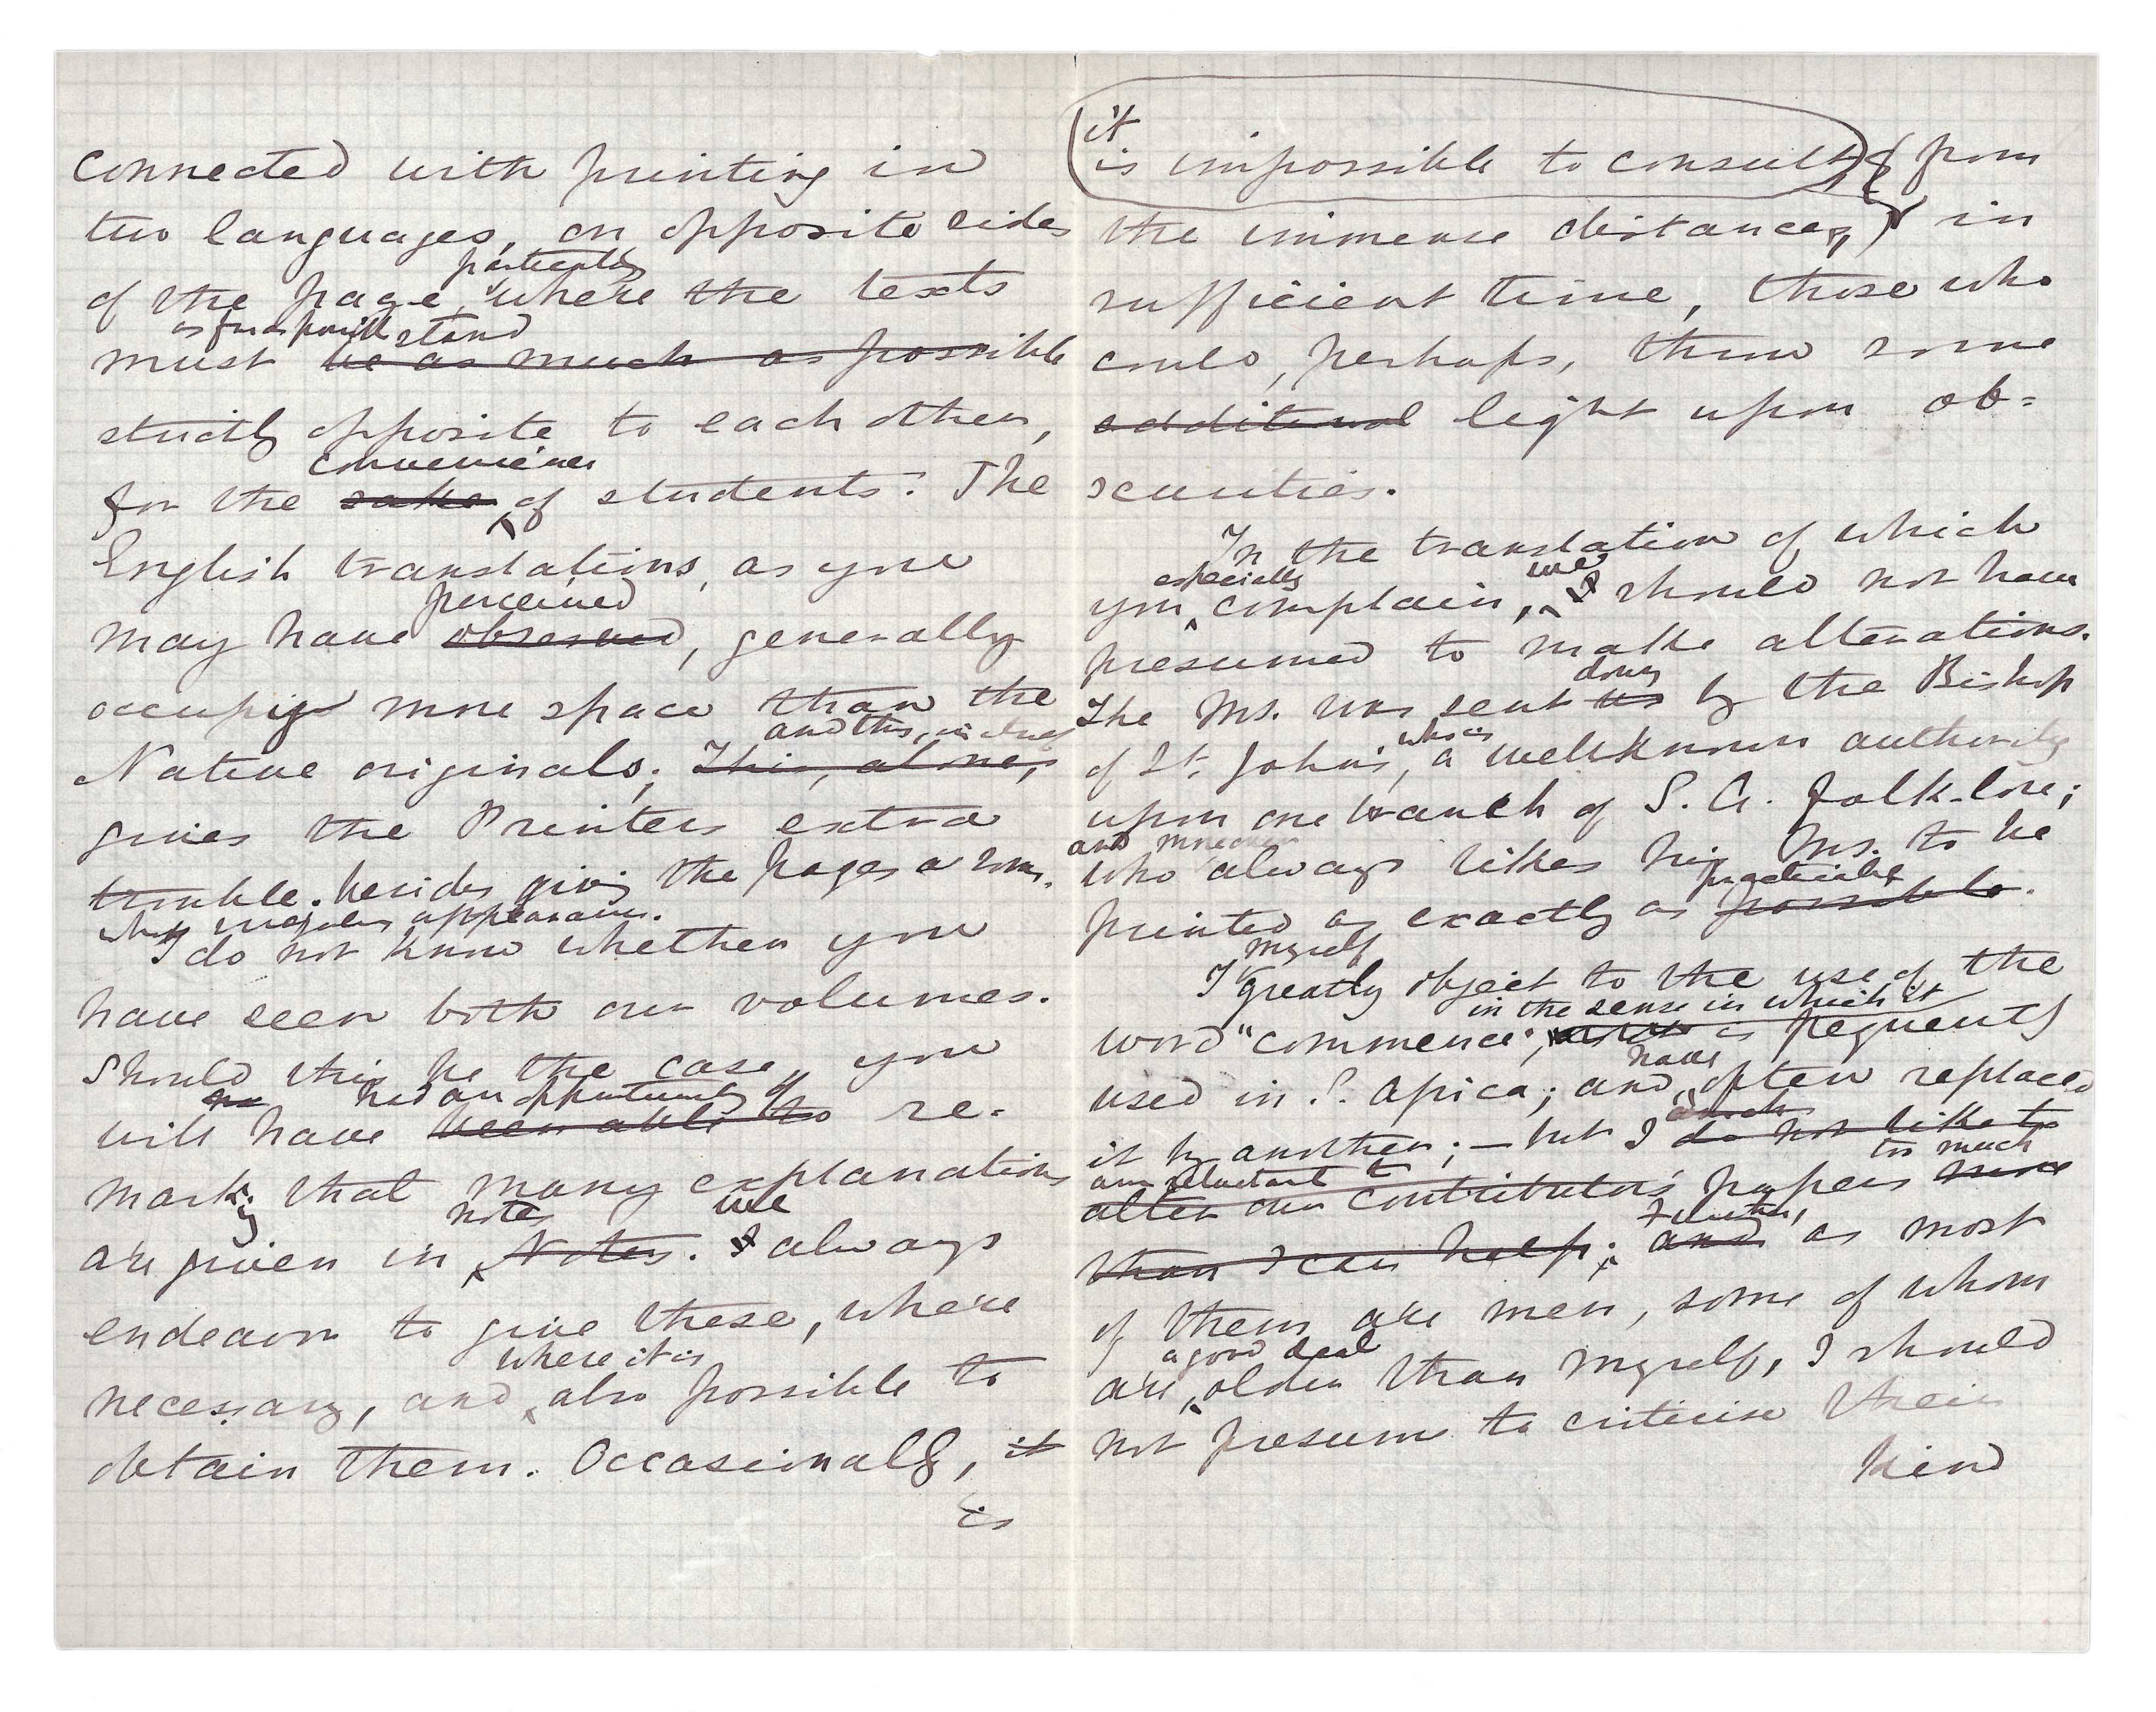 connected with printing in
two languages, on opposite sides
particularly
of the page, where the texts
as far as possible stand
must be as much as possible
strictly opposite to each other,
convenience
for the sake of students. The
English translations, as you
perceived
may have observed, generally
occupy more space than the
and this, in itself
Native originals; This, alone,
gives the Printers extra
trouble. besides giving the pages a some-
what irregular appearance.
I do not know whether you
have seen both our volumes.
Should this be the case, you
had an opportunity of
will have been able to re-
marking that many explanations
notes we
are given in Notes. I always
endeavor to give these, where
where it is
necessary, and also possible to
obtain them. Occasionally, it
is
it
is impossible to consult, (from
the immense distances,) in
sufficient time, those who
could, perhaps, throw some
additional light upon ob=
scurities.
In the translation of which
especially we
you complain, I should not have
presumed to make alterations.
down
The Ms. was sent us by the Bishop
who is
of St. John's, a wellknown authority
upon one branch of S. A. folk-lore;
and moreover
who always likes his Ms. to be
practicable
printed as exactly as possible.
myself
I greatly object to the use of the
in the sense in which it
word "commence", is frequently
have
used in S. Africa; and often replaced
it by another; – but I do not like to
am reluctant to too much
alter our contributors' papers more
Further,
than I can help; and as most
of them are men, some of whom
a good deal
are older than myself, I should
not presume to criticise their
kind